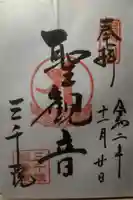 奉拝
令和二年
十一月廿日
聖観音
三千院